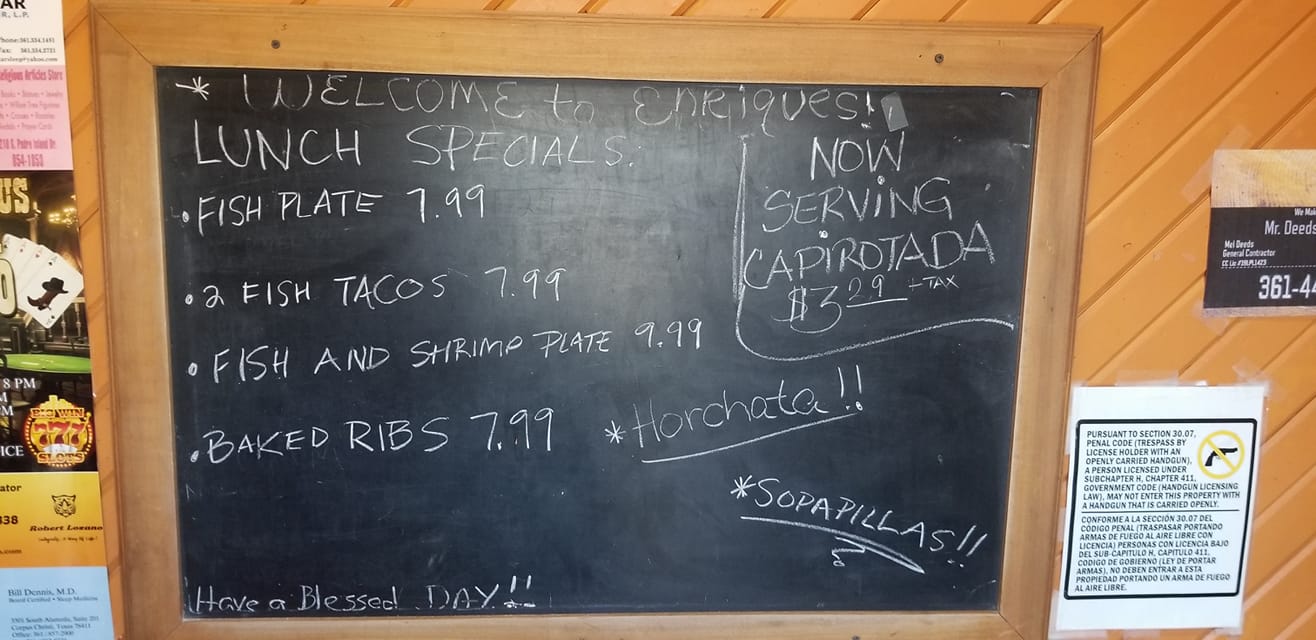 * WELCOME to ENRiques!
LUNCH SPECIALS:
• FISH PLATE 7.99
• 2 FISH TACOS 7.99
• FISH AND SHRIMP PLATE 9.99
• BAKED RIBS 7.99
Have a Blessed DAY!!
NOW
SERViNG
CAPiROTADA
$3.29 + TAX
* Horchata!!
* SOPAPILLAS!!
AR
R, L.P.
Phone: 361.334.1451
Fax: 361.334.2721
eligious Articles Store
Books • Statues • Jewelry
Willow Tree Figurines
Crosses • Rosaries
Medals • Prayer Cards
210 S. Padre Island Dr.
854-1053
US
8 PM
M
PM
ICE
BIG WIN
777
SLOTS
ator
838
Robert Lozano
s.com
Bill Dennis, M.D.
Board Certified • Sleep Medicine
5501 South Alameda, Suite 201
Corpus Christi, Texas 78411
Office: 361 / 857-2900
We Mai
Mr. Deeds
Mel Deeds
General Contractor
361-44
PURSUANT TO SECTION 30.07,
PENAL CODE (TRESPASS BY
LICENSE HOLDER WITH AN
OPENLY CARRIED HANDGUN),
A PERSON LICENSED UNDER
SUBCHAPTER H, CHAPTER 411,
GOVERNMENT CODE (HANDGUN LICENSING
LAW), MAY NOT ENTER THIS PROPERTY WITH
A HANDGUN THAT IS CARRIED OPENLY.
CONFORME A LA SECCIÓN 30.07 DEL
CÓDIGO PENAL (TRASPASAR PORTANDO
ARMAS DE FUEGO AL AIRE LIBRE CON
LICENCIA) PERSONAS CON LICENCIA BAJO
DEL SUB-CAPITULO H, CAPITULO 411,
CODIGO DE GOBIERNO (LEY DE PORTAR
ARMAS), NO DEBEN ENTRAR A ESTA
PROPIEDAD PORTANDO UN ARMA DE FUEGO
AL AIRE LIBRE.